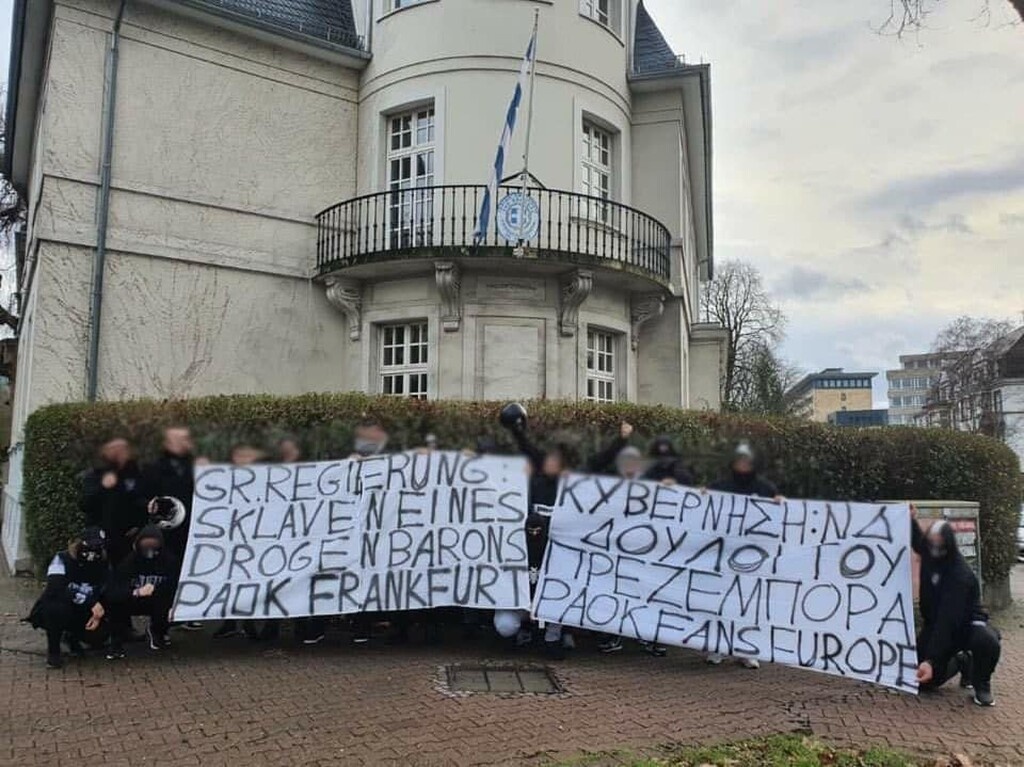 GR.REGIERUNG:
SKLAVEN EINES
DROGENBARONS
PAOK FRANKFURT
ΚΥΒΕΡΝΗΣΗ:ΝΔ
ΔΟΥΛΟΙ ΤΟΥ
ΠΡΕΖΕΜΠΟΡΑ
PAOK FANS EUROPE